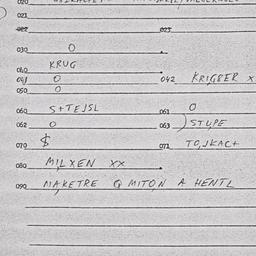 020
021
022 023
030 O
KRUG
040
041 O 042 KRIGBER X
050 O
060 S+TEJSL 061 O
062 O 063 STUPE
070 $ 071 TO,JKAC+
080 MILXEN XX
090 MAKETRE Q MITON A HENTL